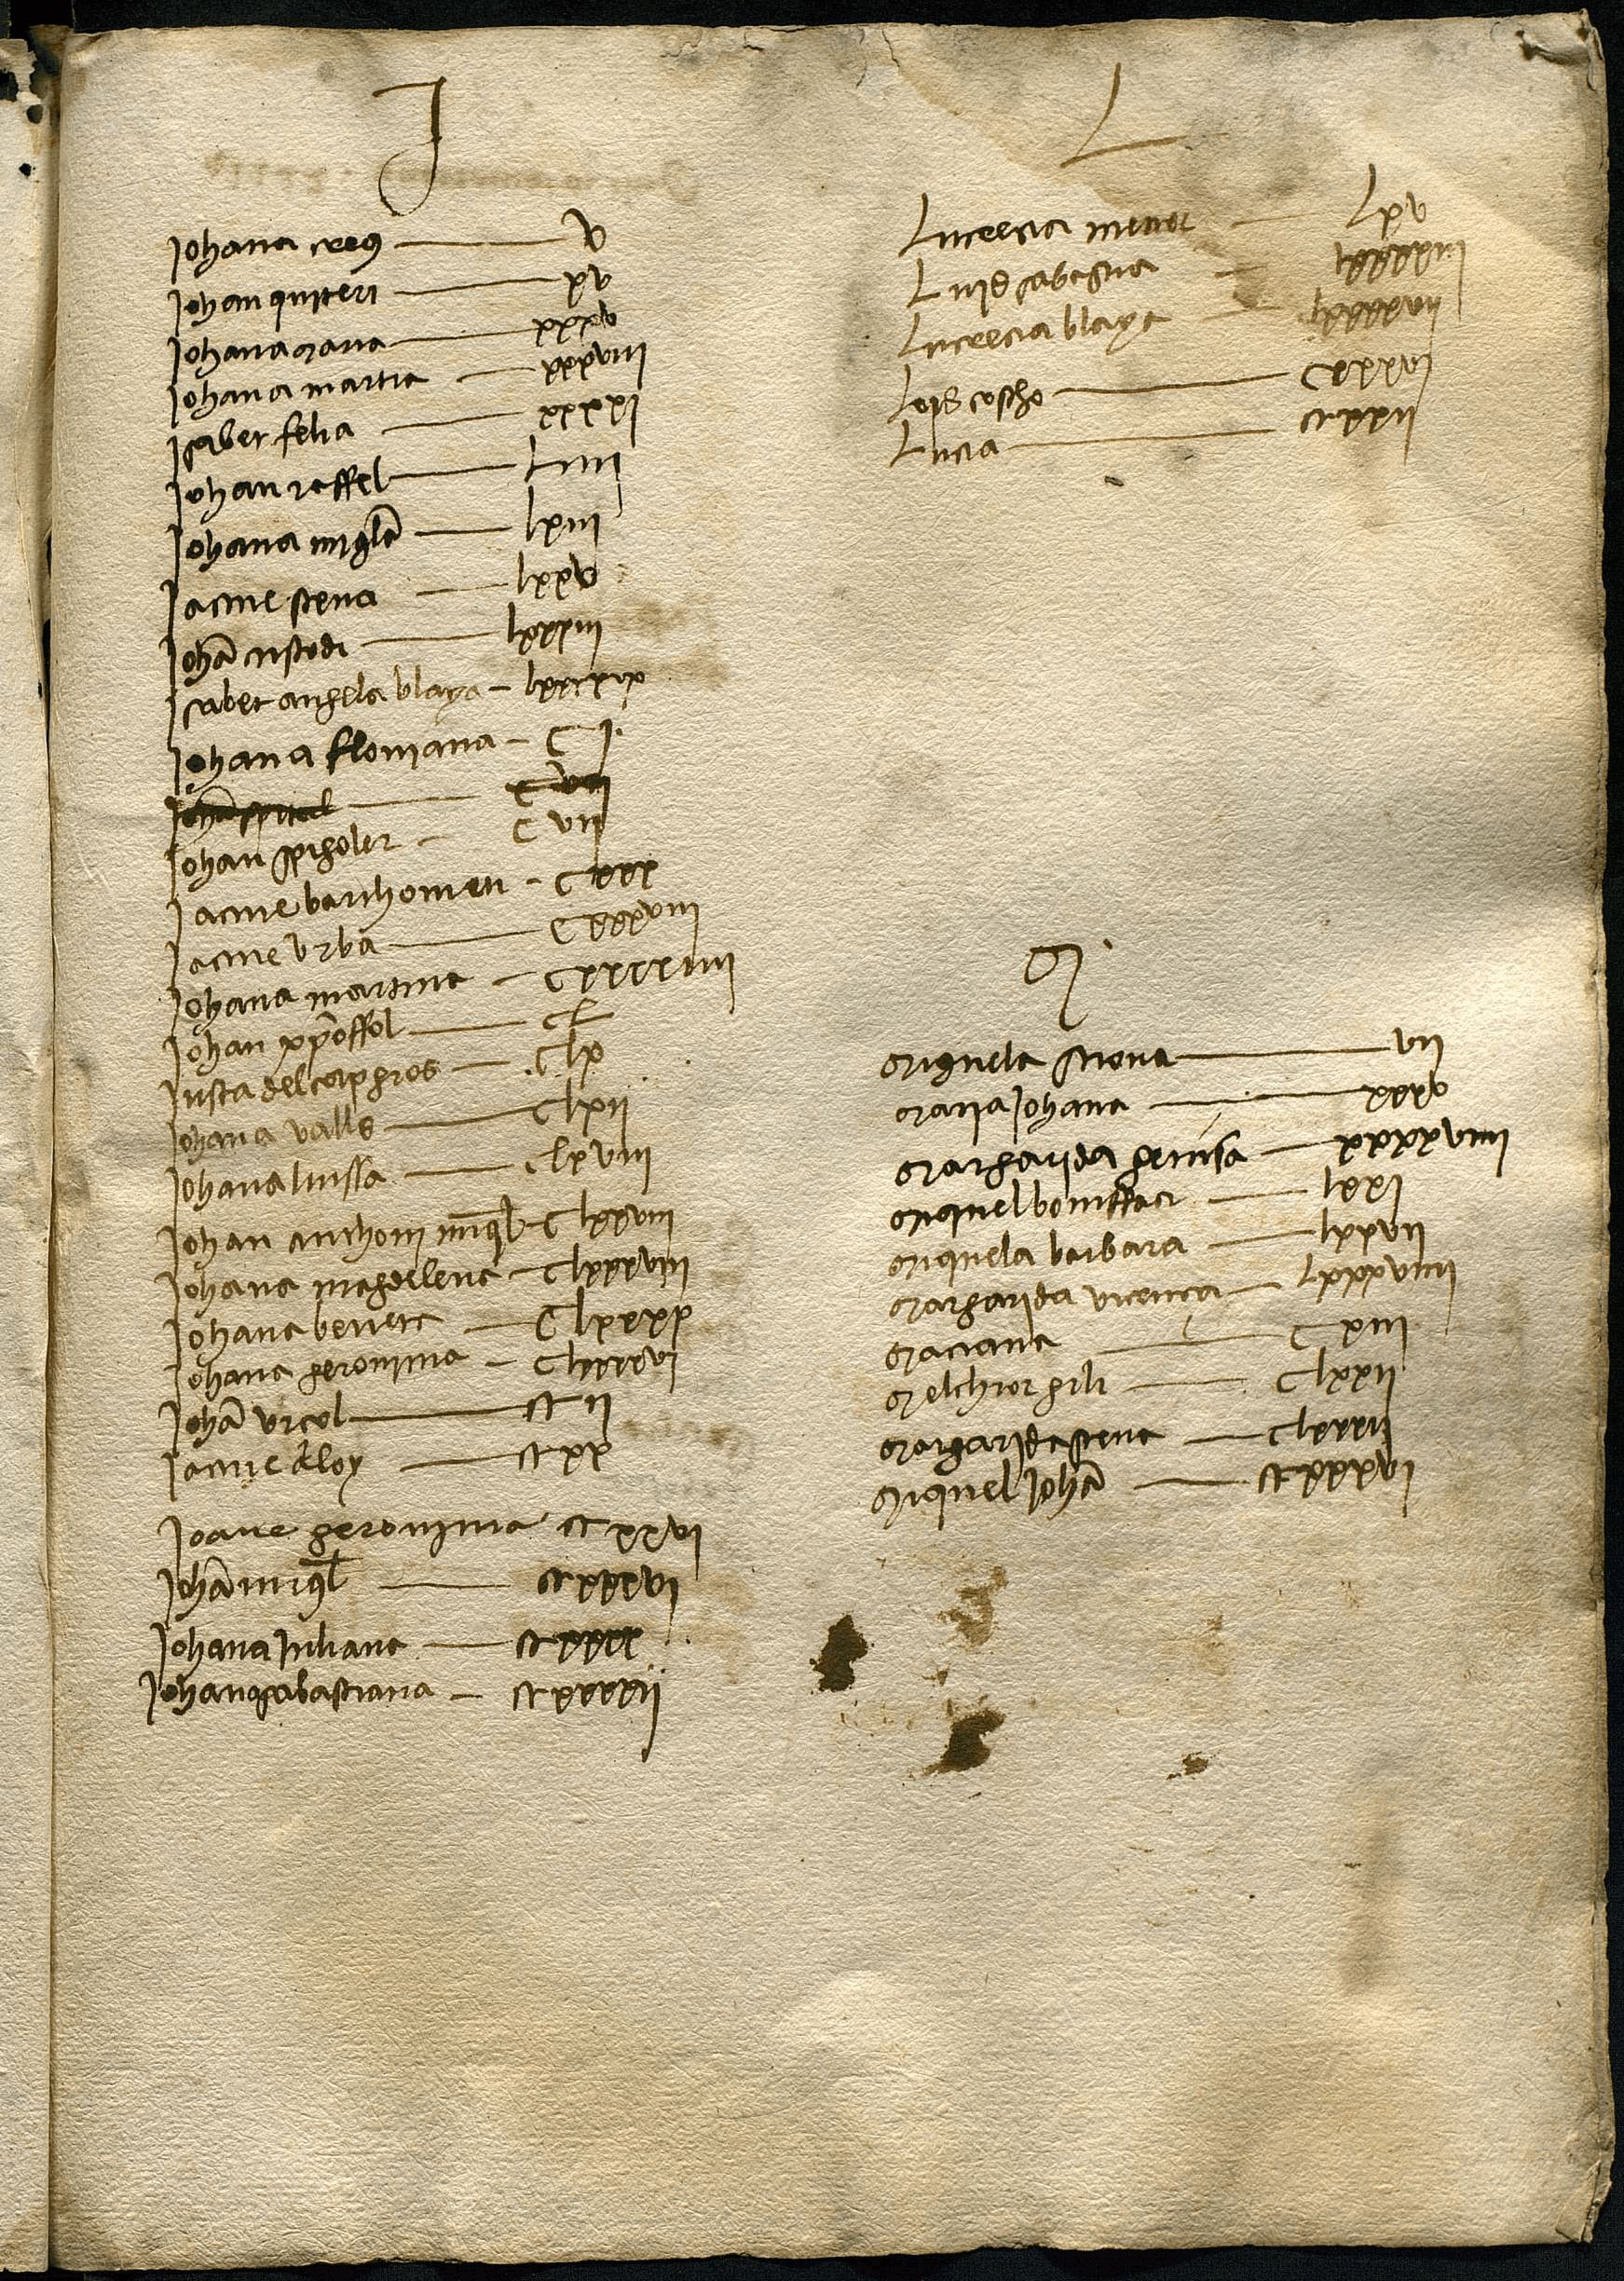 J
Johana creus — v
Johan quiteri — xv
Johana maria — xxxv
Johana martra — xxxviii
Isabet felia — xxxxi
Johan raffel — Liiii
Johana miqla — lxiii
Jacme stena — lxxv
Joha custodi — lxxxiii
Isabet angela blaya — lxxxxix
Johana floriana — C j
Johan spigoler — C vii
Jacme barthomeu — C xxx
Jacme urba — C xxxviii
Johana martina — C xxxxiiii
Johan xpoffol — CL
Justa del corp gros — C lx
Johana valls — C lxii
Johana luissa — C lxviii
Johan anthoni miql — C lxxviii
Johana magdelena — C lxxxviii
Johana beneta — C lxxxx
Johana geronima — C lxxxxvi
Joha vicol — CC ii
Jacme eloy — CC xx
Joana geronima CC xxvi
Joha miql — CC xxxvi
Johana Juliana — CC xxxx
Johana sabastiana — CC xxxxii
L
Lucrecia menor — Lxv
Luis sabestia — lxxxxiii
Lucrecia blaya — lxxxxviii
Lois coscho — C xxxvi
Lucia — CC xxii
M
Miquela stiena — vii
Maria Johana — xxxv
Margarida genisa — xxxxviiii
Miquel boniffaci — lxxi
Miquela barbara — lxxvii
Margarida vicença — Lxxxviiii
Maciana — C xiii
Melchior gili — C lxxii
Margarida stena — C lxxxii
Miquel Joha — CC xxxvi